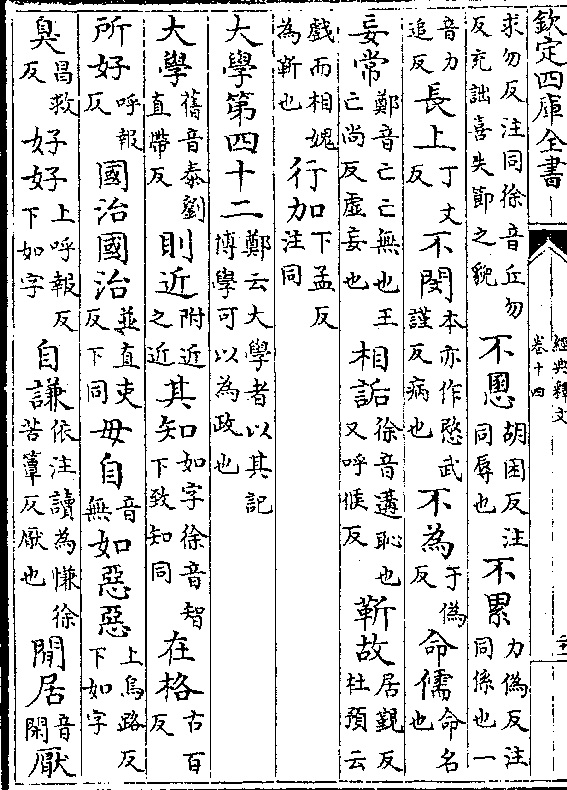 欽定四庫全書
經典釋文
卷十四
求勿反注同徐音丘勿反充詘喜失節之貌 不慁胡困反注同辱也 不累力偽反注同係也一
音力追反 長上丁丈反 不閔本亦作愍武謹反病也 不為于偽反 命儒命名也
妄常鄭音亡亡無也王亡尚反虛妄也 相詬徐音遘恥也又呼候反 靳故居覲反杜預云
戲而相媿為靳也 行加下孟反注同
大學第四十二鄭云大學者以其記博學可以為政也
大學舊音泰劉直帶反 則近附近之近 其知如字徐音智下致知同 在格古百反
所好呼報反 國治國治並直吏反下同 毋自音無 如惡惡上烏路反下如字
臭昌救反 好好上呼報反下如字 自謙依注讀為慊徐苦簟反厭也 閒居音閑 厭